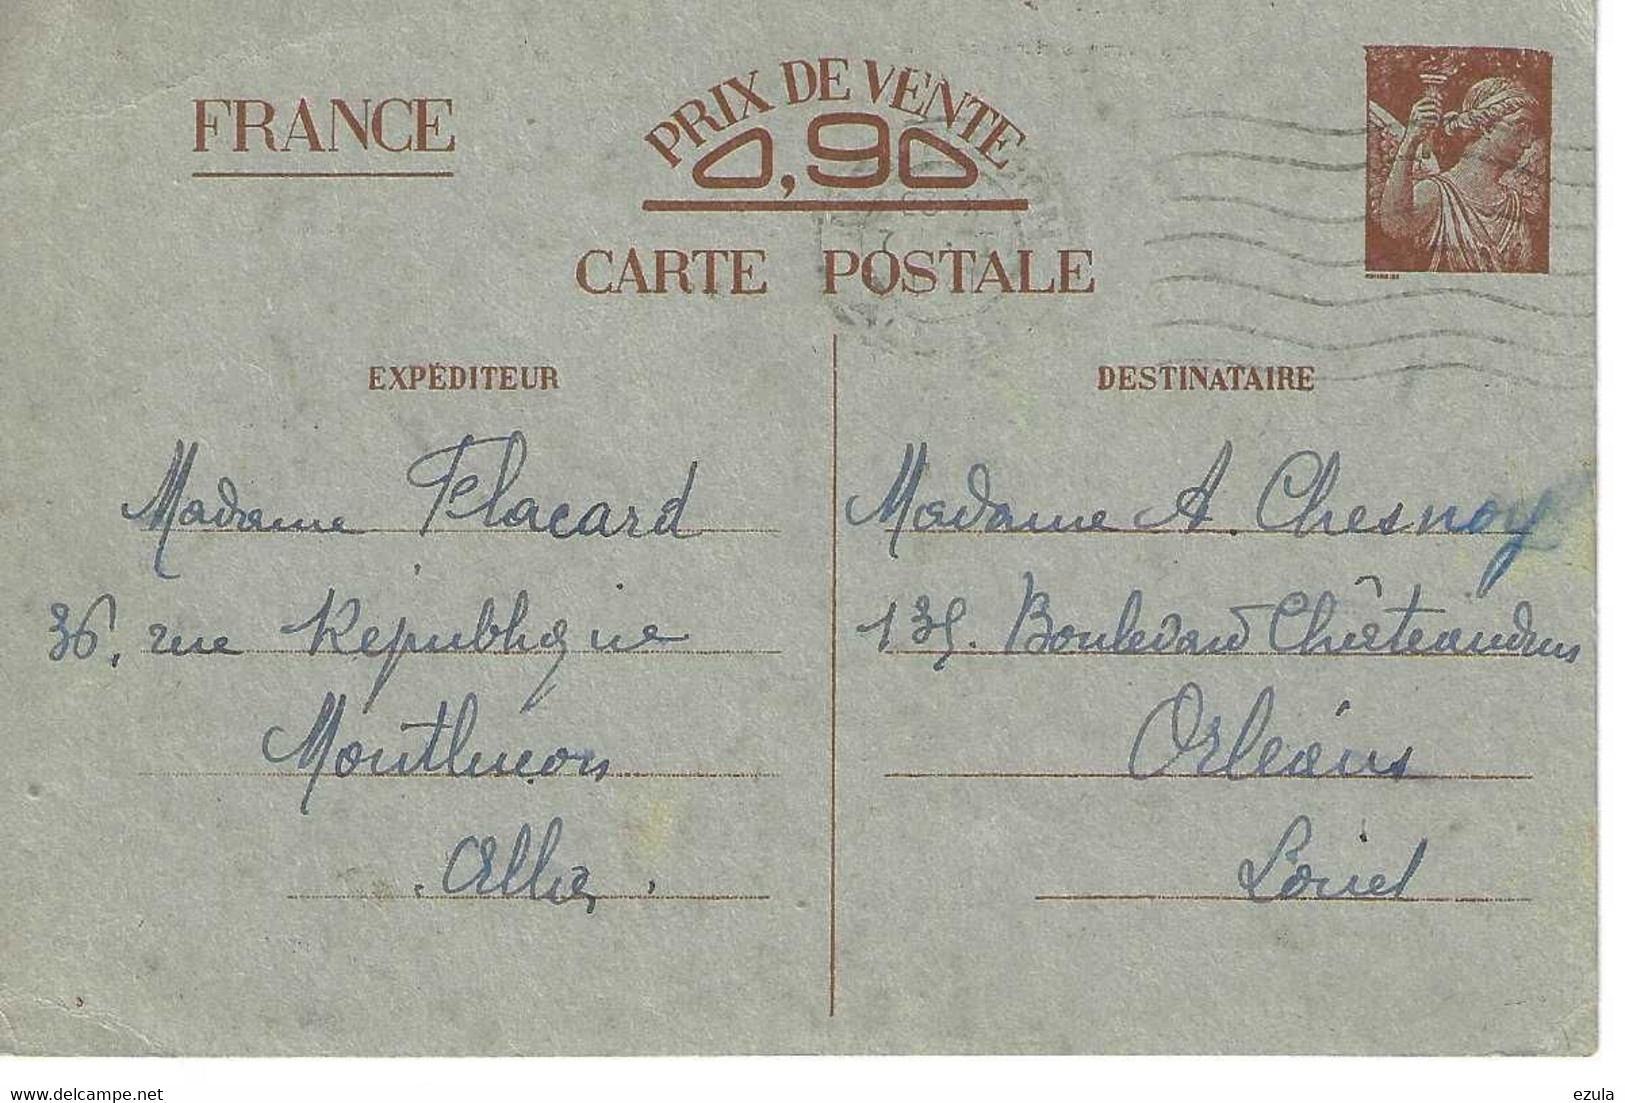 FRANCE
PRIX DE VENTE
0,90
CARTE POSTALE
EXPÉDITEUR
DESTINATAIRE
Madame Flacard
36, rue République
Montluçon
Allier
Madame A. Chesnoy
135. Boulevard Châteaudun
Orléans
Loiret
delcampe.net
ezula